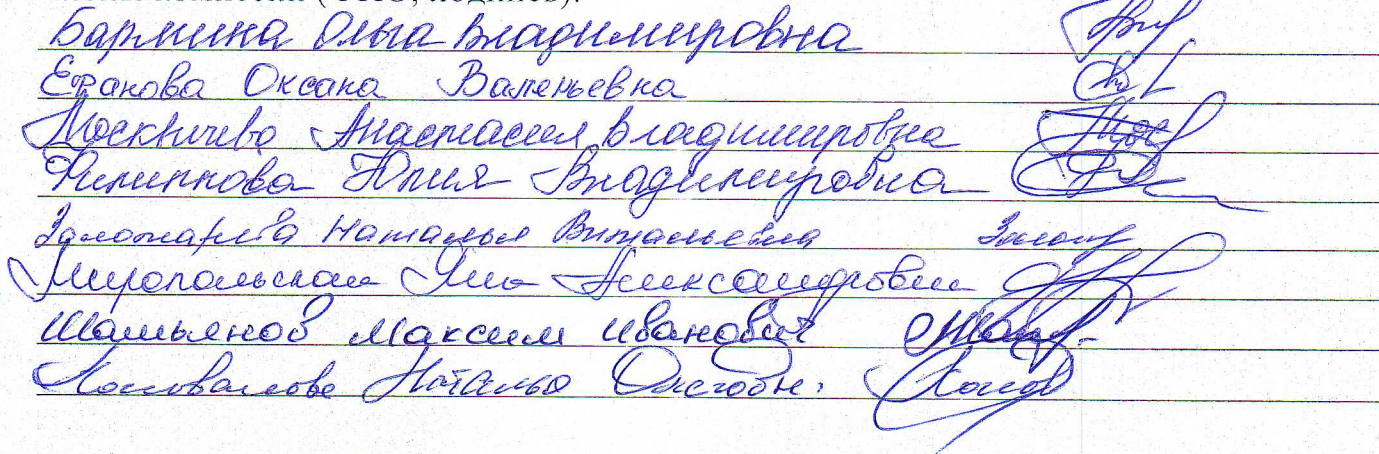 (ФИО, подпись).
Бармина Ольга Владимировна
Ефанова Оксана Валерьевна
Москвичева Анастасия Владимировна
Филиппова Юлия Владимировна
Наталья Витальевна
Миропольская Александровна
Шашьянов Максим Иванович
Коновалова Наталья